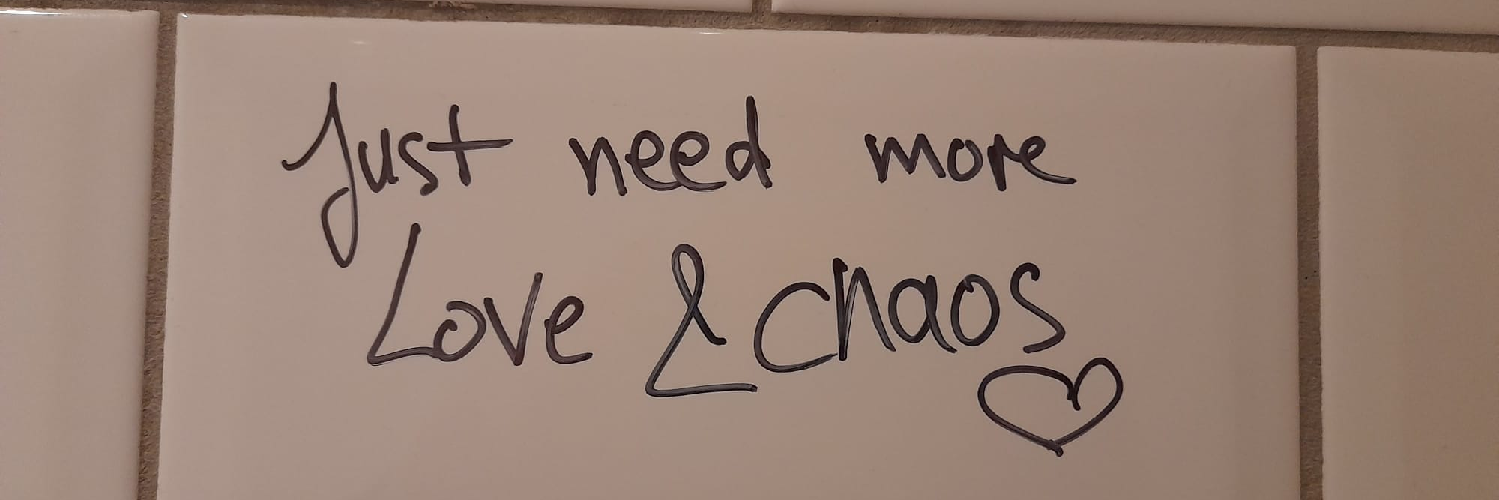 Just need more
Love & chaos